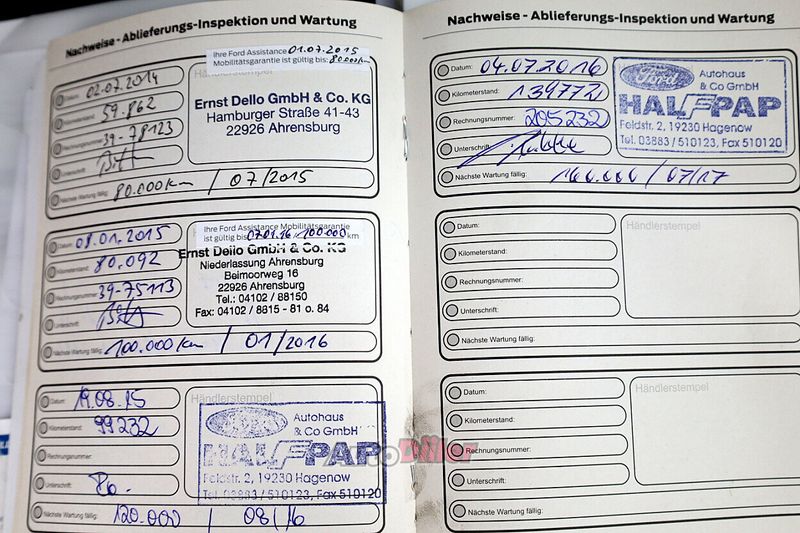 Nachweise - Ablieferungs-Inspektion und Wartung
Ihre Ford Assistance 01.07.2015
Mobilitätsgarantie ist gültig bis: 80.000 km
Datum: 02.07.2014
Händlerstempel
Kilometerstand: 59.862
Ernst Dello GmbH & Co. KG
Hamburger Straße 41-43
22926 Ahrensburg
Rechnungsnummer: 39-78123
Unterschrift:
Nächste Wartung fällig: 80.000 km / 07/2015
Ihre Ford Assistance Mobilitätsgarantie
ist gültig bis: 07.01.16 / 100.000 km
Datum: 08.01.2015
Ernst Dello GmbH & Co. KG
Niederlassung Ahrensburg
Beimoorweg 16
22926 Ahrensburg
Tel.: 04102 / 88150
Fax: 04102 / 8815 - 81 o. 84
Kilometerstand: 80.092
Rechnungsnummer: 39-75113
Unterschrift:
Nächste Wartung fällig: 100.000 km / 01/2016
Datum: 19.08.15
Händlerstempel
Kilometerstand: 99232
Ford
Autohaus
& Co GmbH
HALFPAP
Feldstr. 2, 19230 Hagenow
Tel. 03883 / 510123, Fax 510120
Rechnungsnummer:
Unterschrift:
Nächste Wartung fällig: 120.000 / 08/16
AutoDiler
Nachweise - Ablieferungs-Inspektion und Wartung
Datum: 04.07.2016
Kilometerstand: 139772
Ford
Autohaus
& Co GmbH
HALFPAP
Feldstr. 2, 19230 Hagenow
Tel. 03883 / 510123, Fax 510120
Rechnungsnummer: 205232
Unterschrift:
Nächste Wartung fällig: 160.000 / 07/17
Datum:
Händlerstempel
Kilometerstand:
Rechnungsnummer:
Unterschrift:
Nächste Wartung fällig:
Datum:
Händlerstempel
Kilometerstand:
Rechnungsnummer:
Unterschrift:
Nächste Wartung fällig: